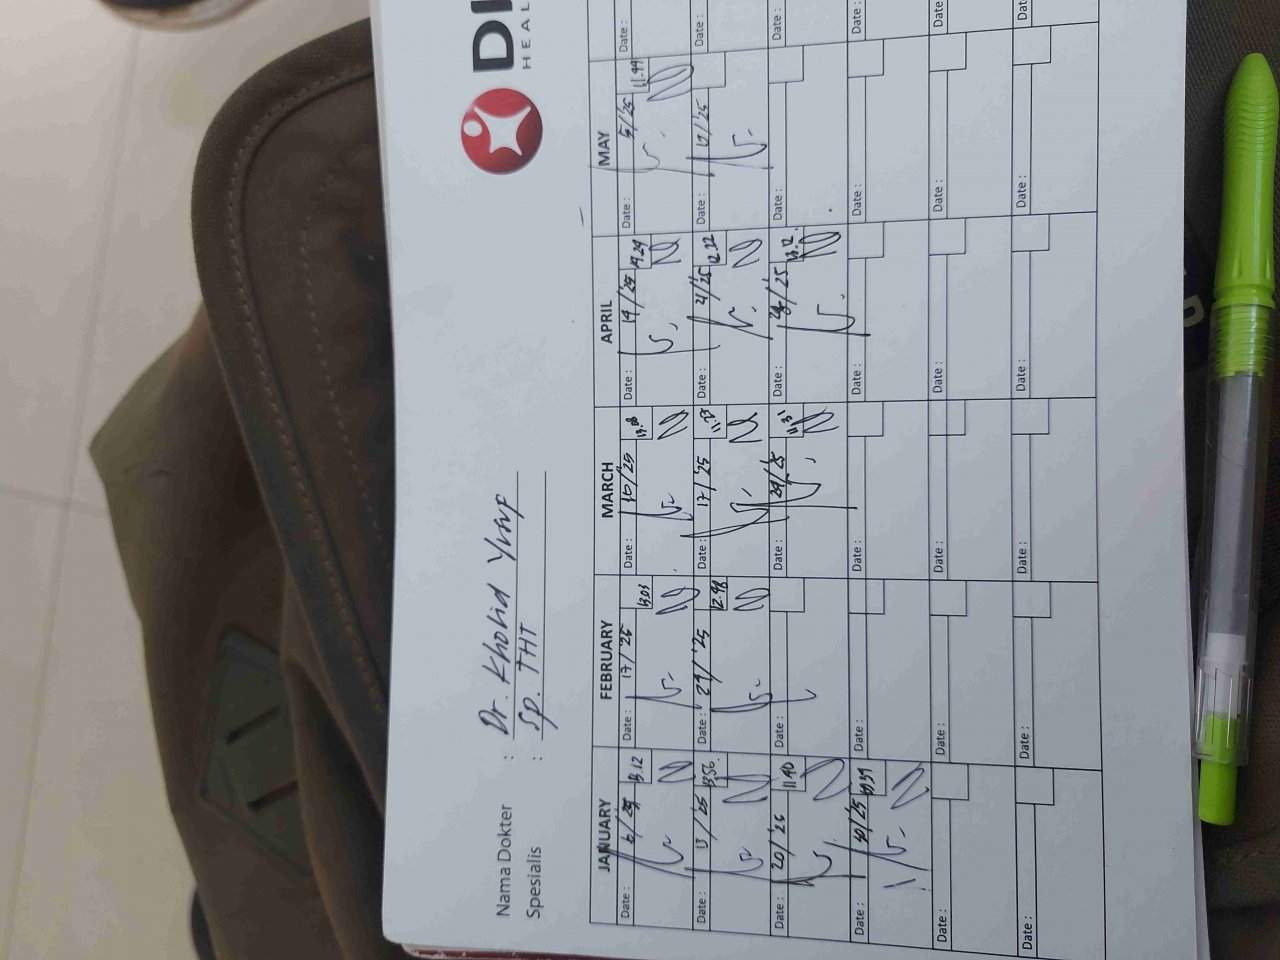 DI
HEAL
Nama Dokter : Dr. Kholid Yusuf
Spesialis : Sp. THT
JANUARY FEBRUARY MARCH APRIL MAY
Date : 6/25 13.12 Date : 17/25 13.03 Date : 10/25 13.08 Date : 14/25 Date : 5/25 11.49 Date :
Date : 13/25 13.56 Date : 24/'25 12.48 Date : 17/'25 Date : 21/'25 12.22 Date : 12/'25 Date :
Date : 20/'25 11.40 Date : Date : 24/25 11.31 Date : /25 13.12 Date : Date :
Date : /25 Date : Date : Date : Date : Date :
Date : Date : Date : Date : Date : Date :
Date : Date : Date : Date : Date : Date :